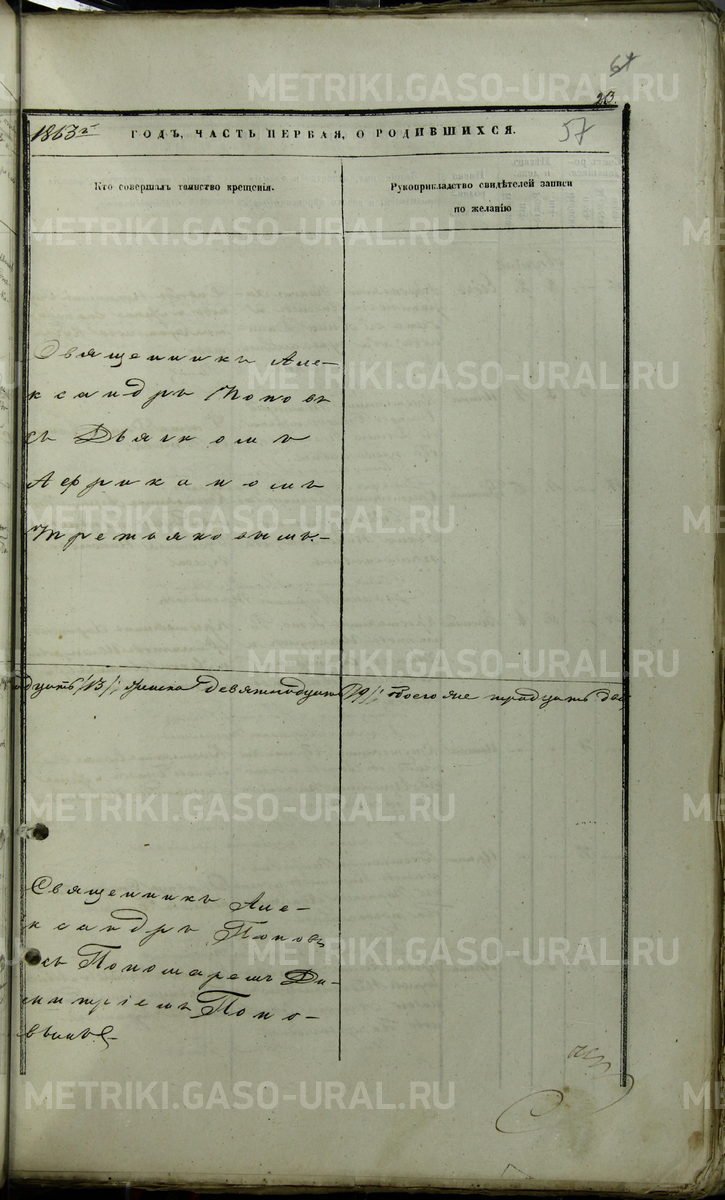 64
23.
1863 г
ГОДЪ, ЧАСТЬ ПЕРВАЯ, О РОДИВШИХСЯ.
57
Кто совершалъ таинство крещенія.
Рукоприкладство свидѣтелей записи
по желанію
Священникъ Але-
ксандръ Поповъ
съ Дьячкомъ
Африканомъ
Третьяковымъ.-
/13/; женска девятнадцать /19/; обоего же тридцать два
Священникъ Але-
ксандръ Поповъ
съ Пономаремъ Ди-
митріемъ Попо-
вымъ.
METRIKI.GASO-URAL.RU